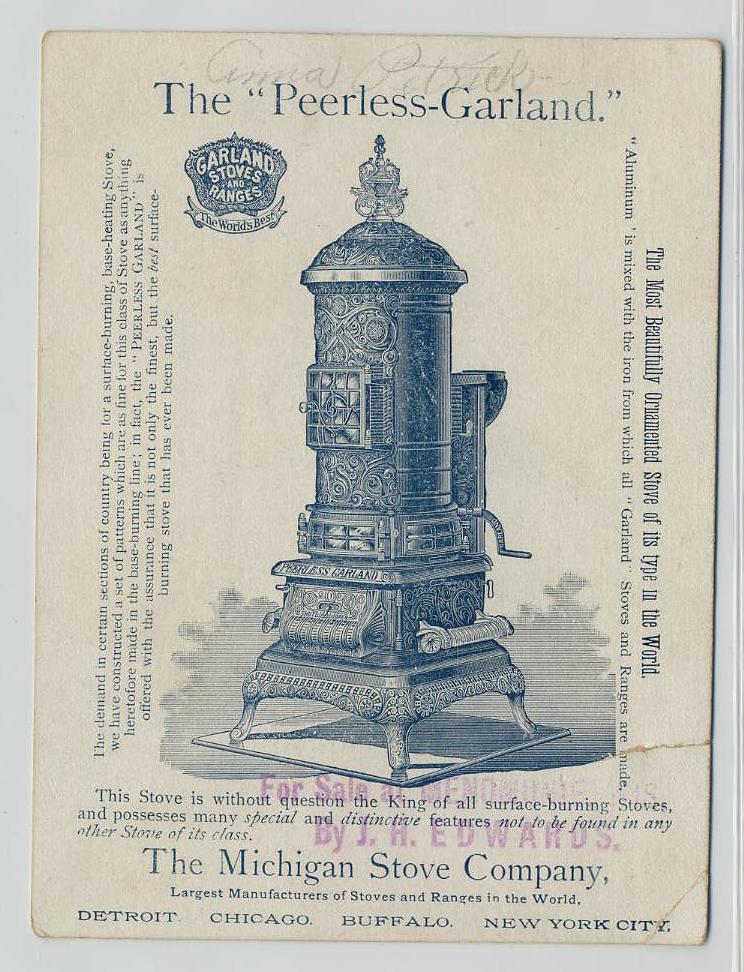 Anna Petrick
The "Peerless-Garland."
GARLAND
STOVES
AND
RANGES
The World's Best
The demand in certain sections of country being for a surface-burning, base-heating Stove,
we have constructed a set of patterns which are as fine for this class of Stove as anything
heretofore made in the base-burning line; in fact, the "PEERLESS GARLAND" is
offered with the assurance that it is not only the finest, but the best surface-
burning stove that has ever been made.
The Most Beautifully Ornamented Stove of its type in the World.
"Aluminum' is mixed with the iron from which all "Garland" Stoves and Ranges are made.
GARLAND
PEERLESS GARLAND
For Sale at MENOMONIE, WIS
By J. H. EDWARDS.
This Stove is without question the King of all surface-burning Stoves,
and possesses many special and distinctive features not to be found in any
other Stove of its class.
The Michigan Stove Company,
Largest Manufacturers of Stoves and Ranges in the World,
DETROIT. CHICAGO. BUFFALO. NEW YORK CITY.